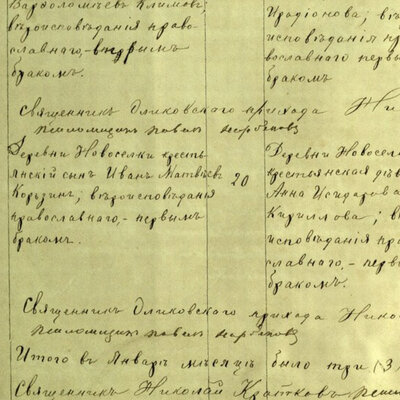 Вардоломѣевъ Климовъ;
вѣроисповѣданія право-
славнаго,- вторымъ
бракомъ.
Иродіонова; вѣ
исповѣданія пра
вославнаго первы
бракомъ
Священникъ Оликовскаго прихода Ни
Деревни Новоселки кресть-
янскій сынъ Иванъ Матвѣевъ
Корзинъ; вѣроисповѣданія
православнаго,- первымъ
бракомъ.
20
Деревни Новосел
крестьянская дѣв
Анна Исидорова
Кириллова; в
исповѣданія пра
славнаго,- перв
бракомъ.
Священникъ Оликовскаго прихода Нико
Итого въ Январѣ мѣсяцѣ было три (3
Священникъ Николай